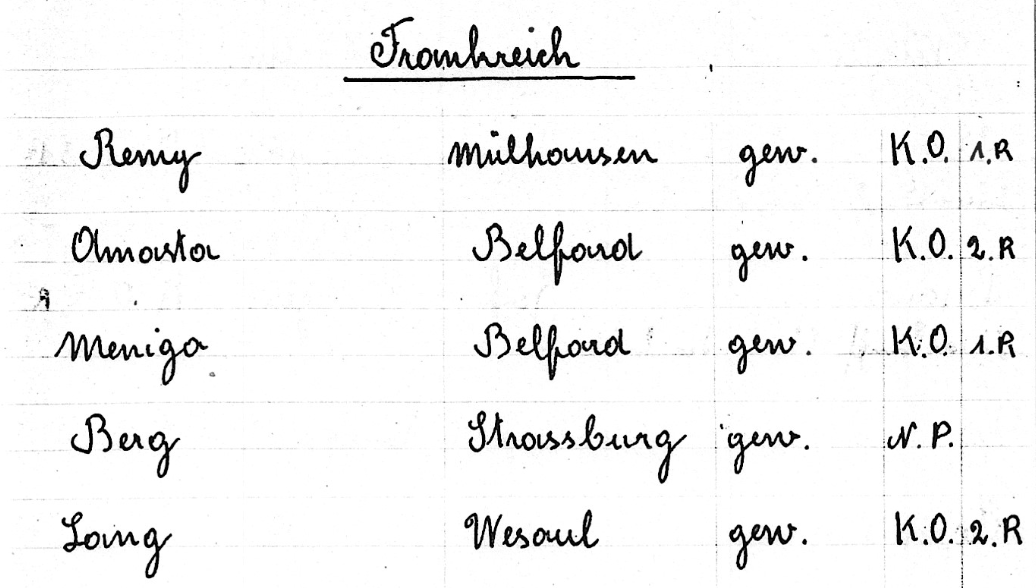 Frankreich
Remy Mülhausen gew. K.O. 1.R
Olmasta Belfard gew. K.O. 2.R
Meniga Belfard gew. K.O. 1.R
Berg Strassburg gew. N.P.
Lang Wesaul gew. K.O. 2.R